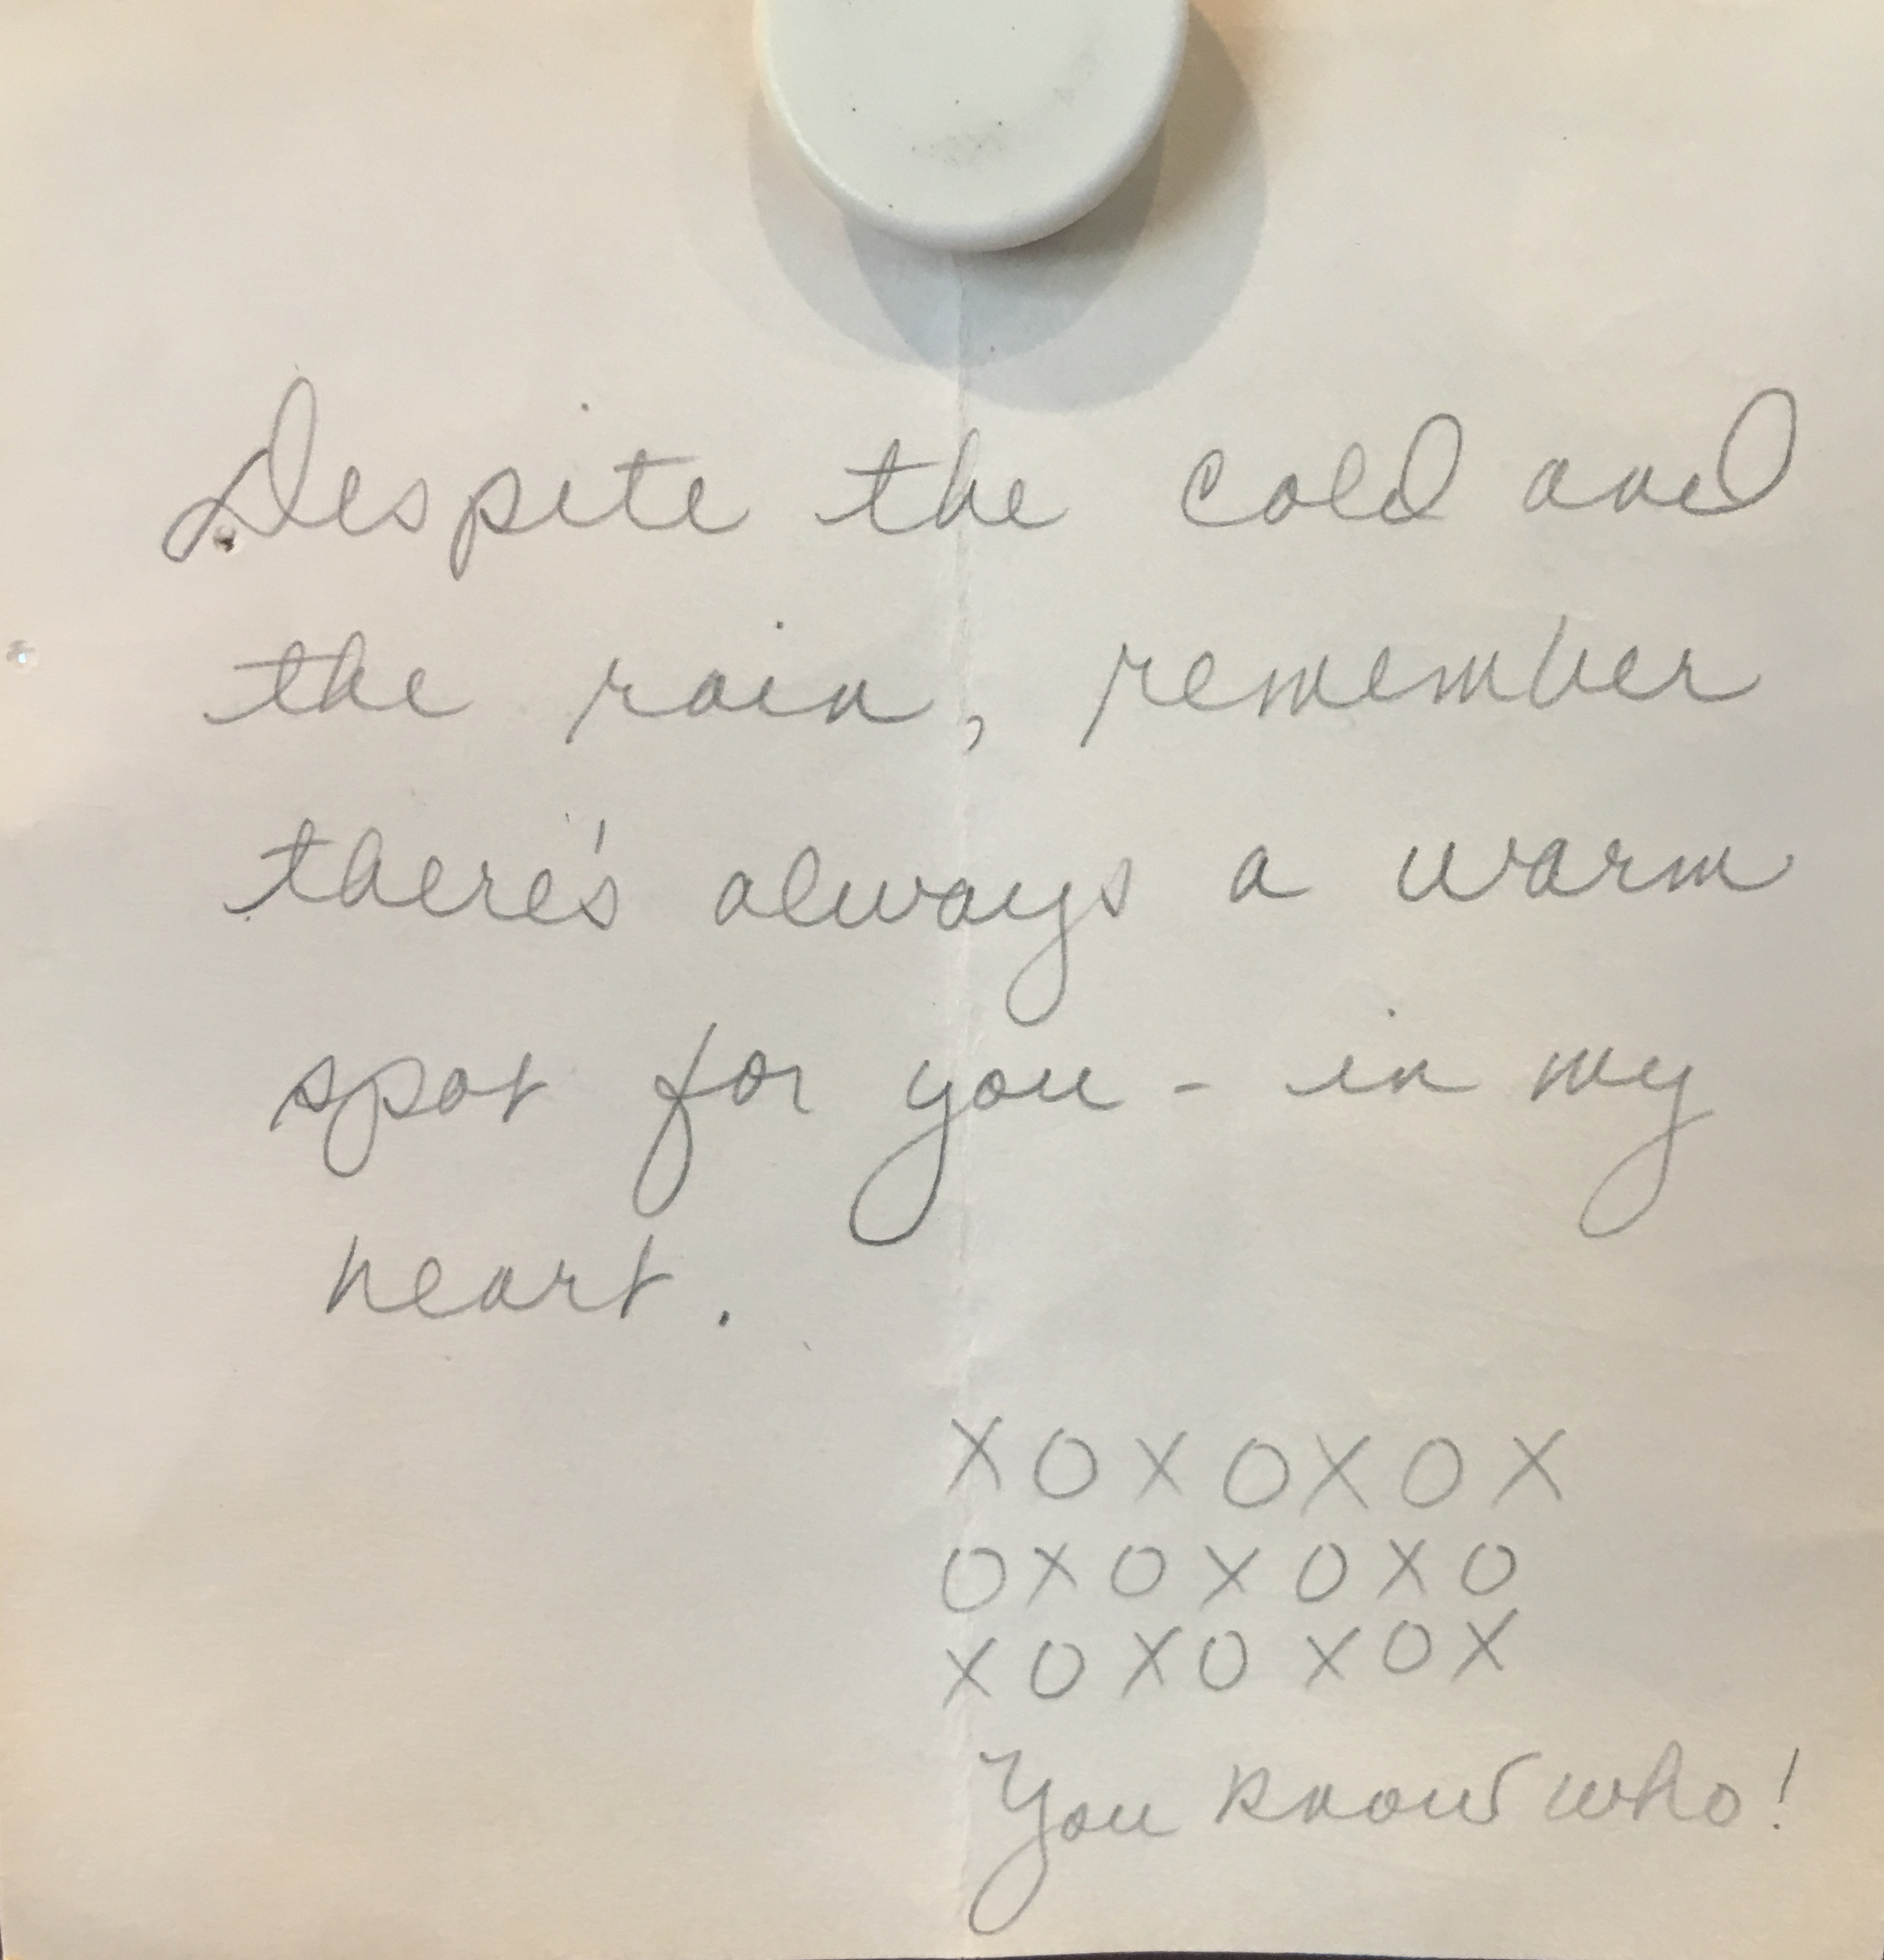 Despite the cold and
the rain, remember
there's always a warm
spot for you - in my
heart.
XOXOXOX
OXOXOXO
XOXOXOX
You know who!